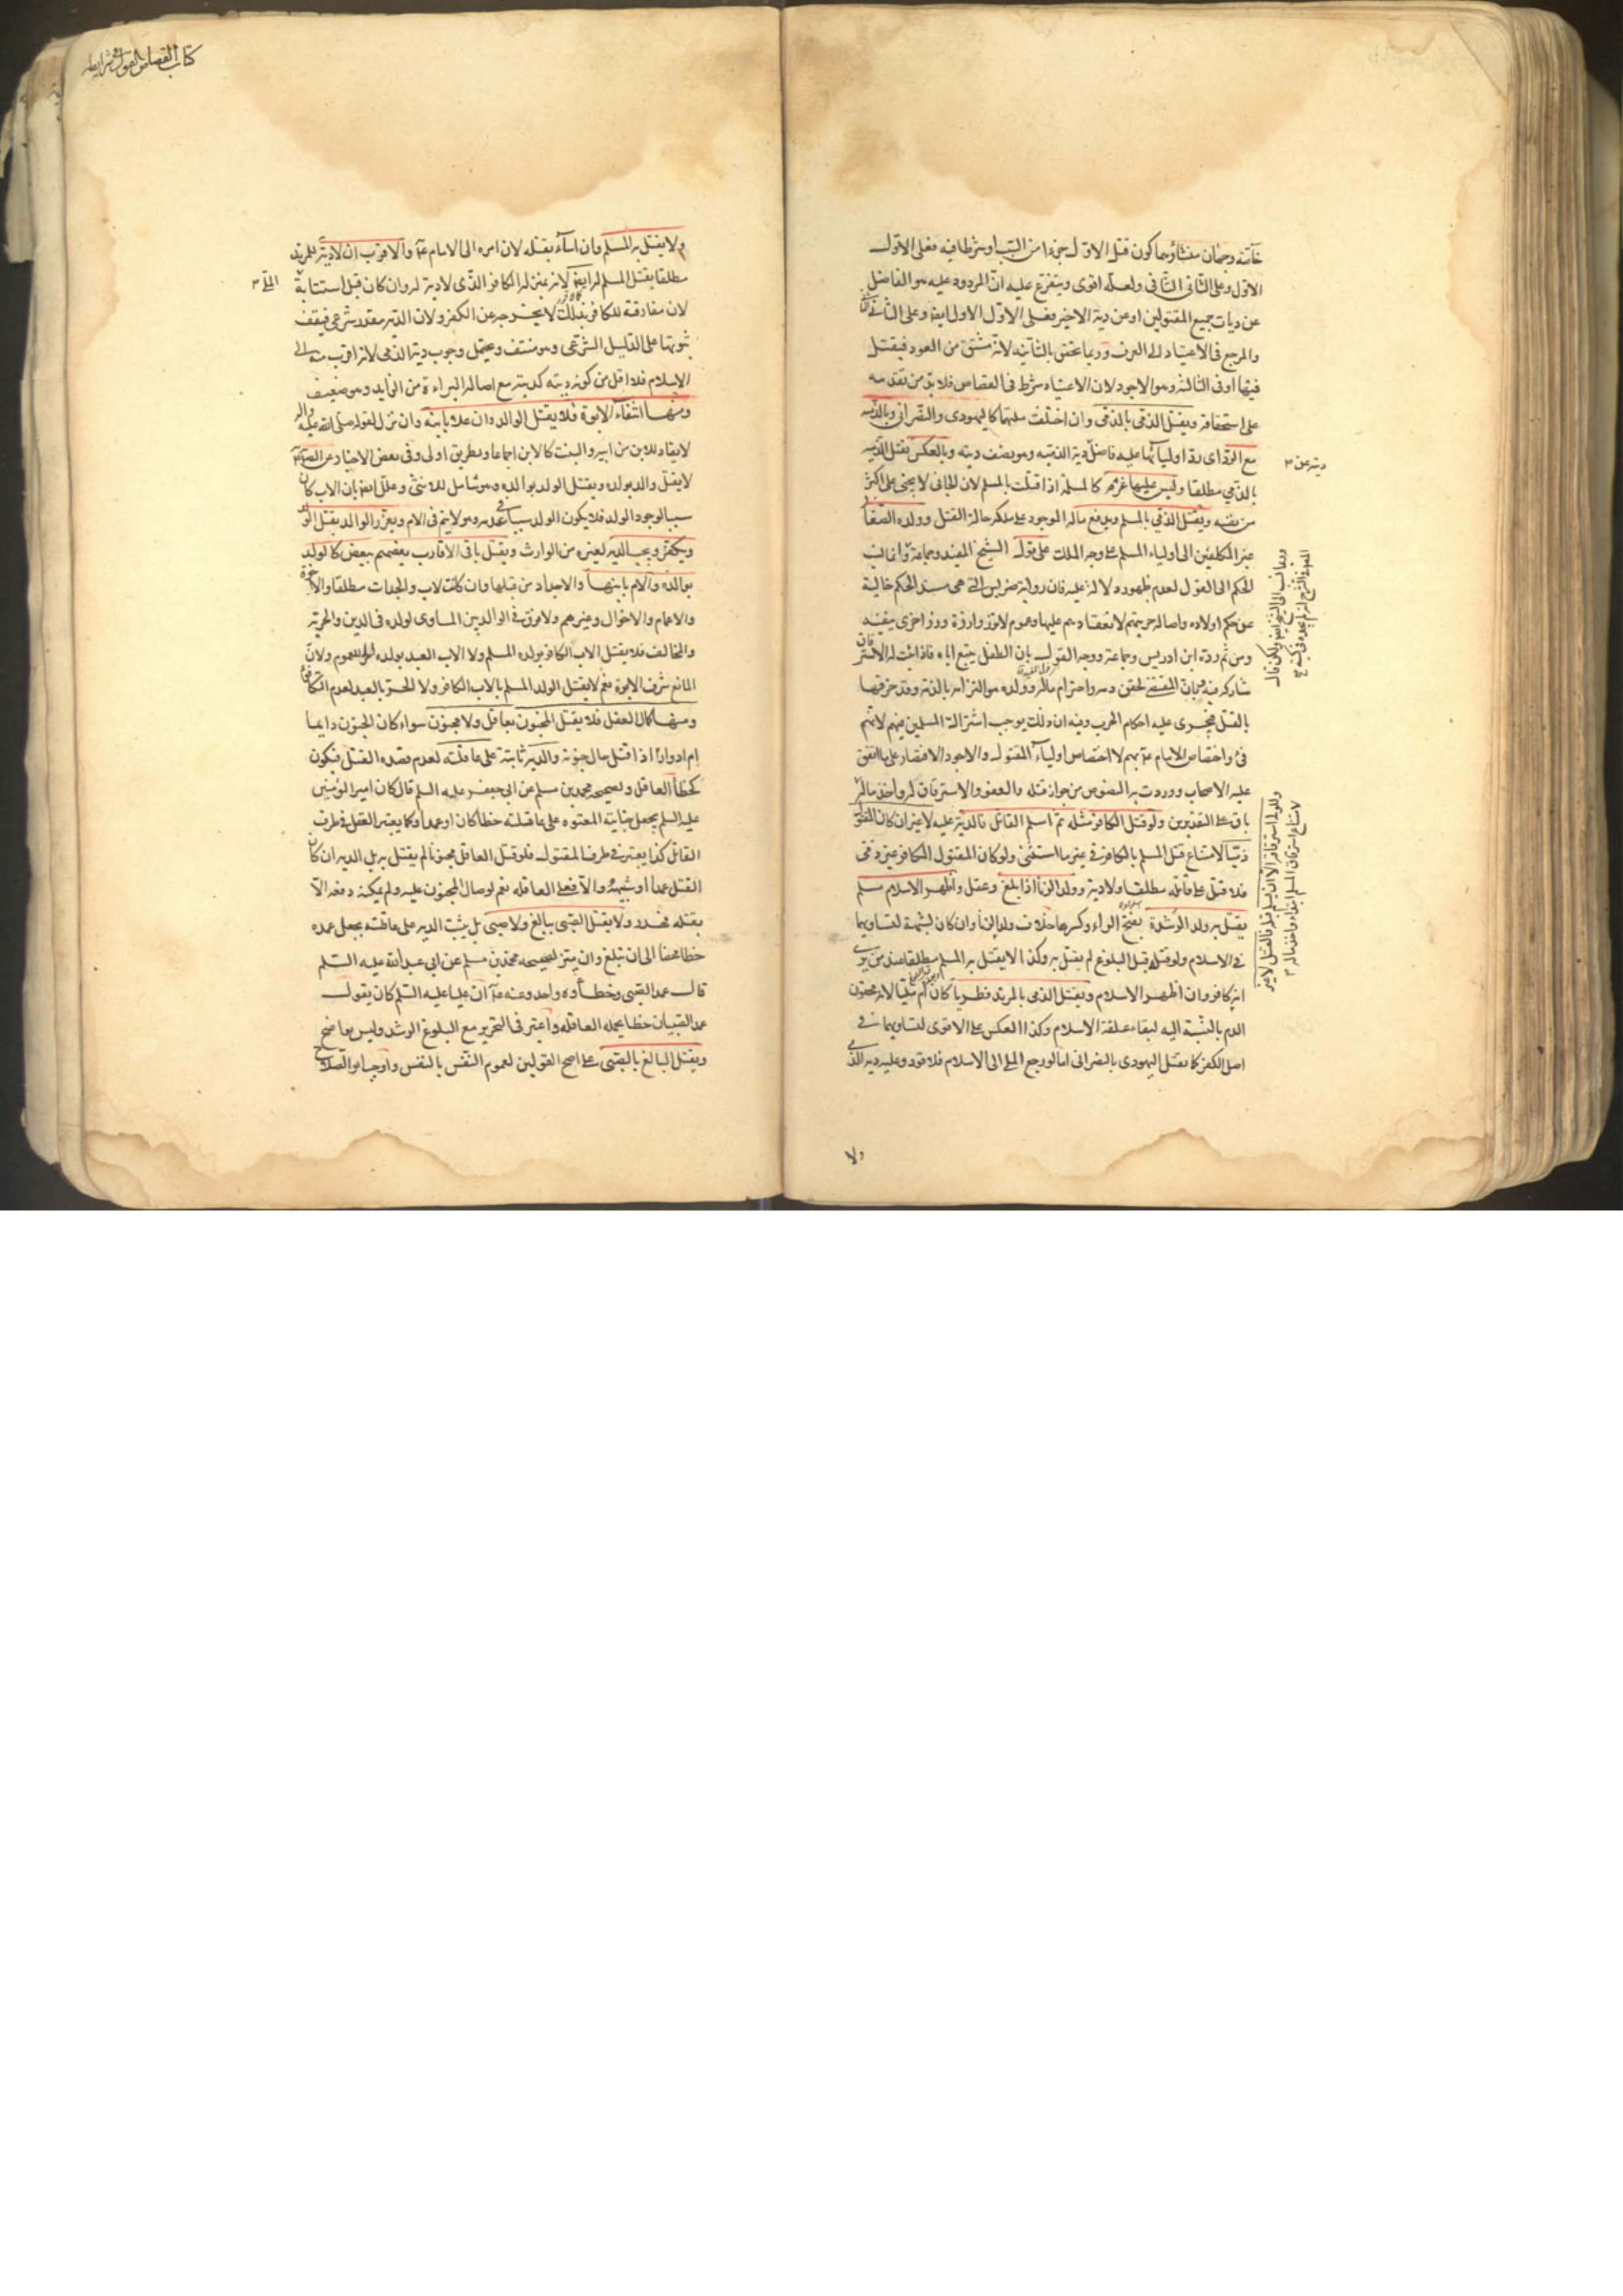 خاتمه وجهان منشأوهما كون قتل الاول جزءا من السبب او شرطا فيه فعلى الاول
الاول وعلى الثانى الثانى ولعله اقوى ويتفرع عليه ان المردود عليه هو الفاضل
عن ديات جميع المقتولين او عن دية الاخير فعلى الاول الاول ايضا وعلى الثانى
والمرجع فى الاعتياد الى العرف وربما تحقق بالثانية لانه مشتق من العود فيقتل
فيها او فى الثالثة وهو الاجود لان الاعتياد شرط فى القصاص فلا بد من تقدمه
على استحقاقه ويقتل الذمى بالذمى وان اختلفت ملتهما كاليهودى والنصرانى وبالذمية
مع الرد اى رد اوليائها عليه فاضل دية الذمية وهو نصف ديته وبالعكس تقتل الذمية
بالذمي مطلقا وليس عليها غرم كالمسلمة اذا قتلت بالمسلم لان الجانى لا يجنى على اكثر
من نفسه ويقتل الذمى بالمسلم ويدفع ماله الموجود على ملكه حالة القتل وولده الصغار
غير المكلفين الى اولياء المسلم على وجه الملك على قول الشيخ المفيد وجماعة وانما نسب
الحكم الى القول لعدم ظهور دلالة عليه فان رواية ضريس التى هى مستند الحكم خالية
عن حكم اولاده واصالة حريتهم لانعقادهم عليها وعموم لا تزر وازرة وزر اخرى ينفيه
ومن ثم رده ابن ادريس وجماعة ووجه القول بان الطفل يتبع اباه فاذا ثبت له الاسترقاق
شاركه فيه وبان المقتضى لحقن دمه واحترام ماله وولده هو التزامه بالذمة وقد خرقها
بالقتل فيجرى عليه احكام الحرب وفيه ان ذلك يوجب اشتراك المسلمين فيهم لانهم
فئ او اختصاص الامام ع بهم لا اختصاص اولياء المقتول والاجود الاقتصار على ما اتفق
عليه الاصحاب ووردت به النصوص من جواز قتله والعفو والاسترقاق له واخذ ماله
باق على التقديرين ولو قتل الكافر مثله ثم اسلم القاتل فالدية عليه لا غير ان كان المقتول
ذميا لامتناع قتل المسلم بالكافر فى غير ما استثنى ولو كان المقتول الكافر غير ذمى
فلا قتل على قاتله مطلقا ولا دية وولد الزنا اذا بلغ وعقل واظهر الاسلام مسلم
يقتل به ولد الرشدة بفتح الراء وكسرها خلاف ولد الزنا وان كان لشبهة لتساويهما
فى الاسلام ولو قتله قبل البلوغ لم يقتل به وكذا لا يقتل به المسلم مطلقا عند من يرى
انه كافر وان اظهر الاسلام ويقتل الذمى بالمرتد فطريا كان ام مليا لانه محقون
الدم بالنسبة اليه لبقاء علقة الاسلام وكذا العكس على الاقوى لتساويهما فى
اصل الكفر كما يقتل اليهودى بالنصرانى اما لو رجع الملى الى الاسلام فلا قود وعليه دية الذمى
ولا
ديته عن
كتاب القصاص القول فى شرايطه
ولا يقتل به المسلم وان اساء بقتله لان امره الى الامام ع والاقرب ان لا دية للمرتد
مطلقا بقتل المسلم له ايضا لانه بمنزلة الكافر الذى لا دية له وان كان قبل استتابة
الملى
لان مفارقته للكافر بذلك لا يخرجه عن الكفر ولان الدية مقدر شرعى فيقف
ثبوتها على الدليل الشرعى وهو منتف ويحتمل وجوب دية الذمى لانه اقرب منه الى
الاسلام فلا اقل من كون ديته كديته مع اصالة البراءة من الزايد وهو ضعيف
ومنها انتفاء الابوة فلا يقتل الوالد وان علا بابنه وان نزل لقوله صلى الله عليه واله
لا يقاد للابن من ابيه والبنت كالابن اجماعا وبطريق اولى وفى بعض الاخبار عن الصادق ع
لا يقتل والد بولده ويقتل الولد بوالده وهو شامل للانثى وعلل ايضا بان الاب كان
سببا لوجود الولد فلا يكون الولد سببا فى عدمه وهو لا يتم فى الام ويعزر الوالد بقتل الولد
ويكفر ويجب الدية لغيره من الوارث ويقتل باقى الاقارب بعضهم ببعض كالولد
بوالده والام بابنها والاجداد من قبلها وان كانت لاب والجدات مطلقا والاخوة
والاعمام والاخوال وغيرهم ولا فرق فى الوالد بين المساوى لولده فى الدين والحرية
والمخالف فلا يقتل الاب الكافر بولده المسلم ولا الاب العبد بولده الحر للعموم ولان
المانع شرف الابوة نعم لا يقتل الولد المسلم بالاب الكافر ولا الحر بالعبد لعدم التكافؤ
ومنها كمال العقل فلا يقتل المجنون بعاقل ولا مجنون سواء كان الجنون دايما
ام ادوارا اذا قتل حال جنونه والدية ثابتة على عاقلته لعدم قصده القتل فيكون
كخطأ العاقل ولصحيحة محمد بن مسلم عن ابى جعفر عليه السلم قال كان امير المؤمنين
عليه السلم يجعل جناية المعتوه على عاقلته خطأ كان او عمدا وكما يعتبر العقل فى طرف
القاتل كذا يعتبر فى طرف المقتول فلو قتل العاقل مجنونا لم يقتل به بل الدية ان كان
القتل عمدا او شبهه والا فعلى العاقلة نعم لو صال المجنون عليه ولم يمكنه دفعه الا
بقتله هدر ولا يقتل الصبى ببالغ ولا صبى بل يثبت الدية على عاقلته بجعل عمده
خطا محضا الى ان تبلغ وان ميز لصحيحة محمد بن مسلم عن ابى عبد الله عليه السلم
قال عمد الصبى وخطأوه واحد وعنه ع ان عليا عليه السلم كان يقول
عمد الصبيان خطا يحمله العاقلة واعتبر فى التحرير مع البلوغ الرشد وليس بواضح
ويقتل البالغ بالصبى على اصح القولين لعموم النفس بالنفس واوجب ابو الصلاح